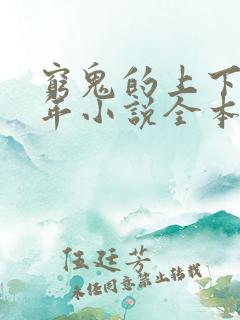 窮鬼的上下
年小說全本
伍廷芳
未任同意禁止轉載